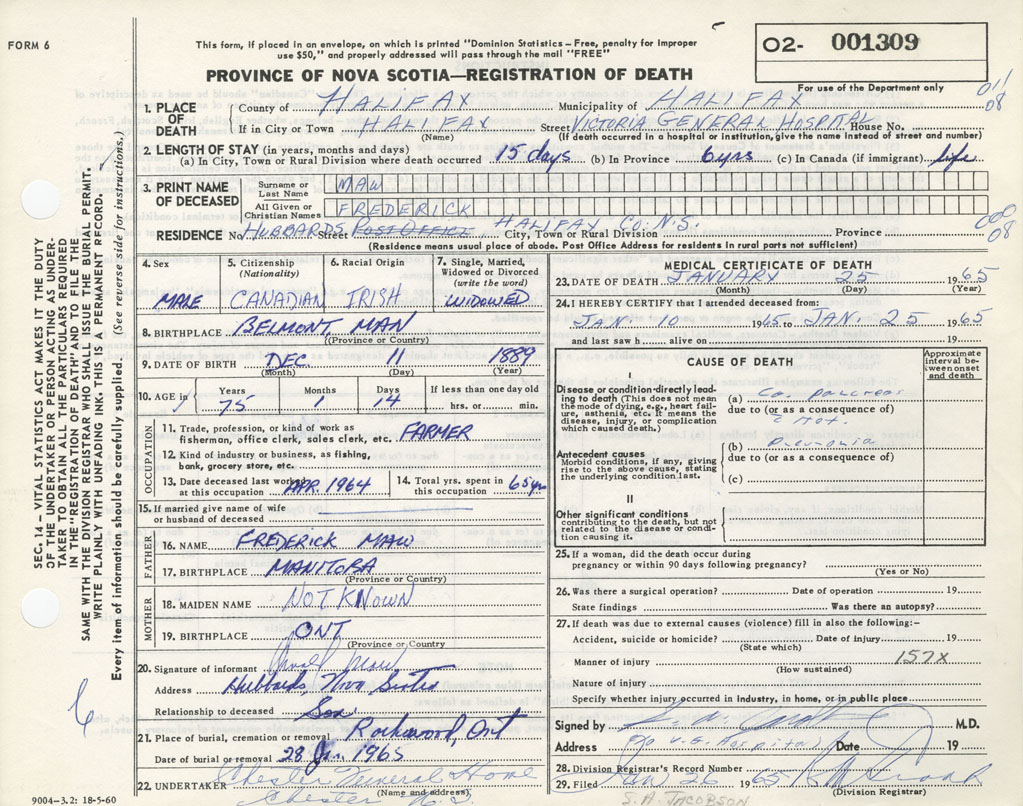 FORM 6
This form, if placed in an envelope, on which is printed "Dominion Statistics – Free, penalty for improper
use $50," and properly addressed will pass through the mail "FREE"
O2- 001309
For use of the Department only
PROVINCE OF NOVA SCOTIA—REGISTRATION OF DEATH
011
08
1. PLACE OF DEATH County of HALIFAX Municipality of HALIFAX
If in City or Town HALIFAX (Name) Street VICTORIA GENERAL HOSPITAL House No.
(If death occurred in a hospital or institution, give the name instead of street and number)
2. LENGTH OF STAY (in years, months and days)
(a) In City, Town or Rural Division where death occurred 15 days (b) In Province 6 yrs (c) In Canada (if immigrant) life
3. PRINT NAME OF DECEASED Surname or Last Name MAW
All Given or Christian Names FREDERICK
RESIDENCE No. HUBBARDS Street POST OFFICE City, Town or Rural Division HALIFAX CO. N.S. Province
000
08
(Residence means usual place of abode. Post Office Address for residents in rural parts not sufficient)
4. Sex MALE
5. Citizenship (Nationality) CANADIAN
6. Racial Origin IRISH
7. Single, Married, Widowed or Divorced (write the word) WIDOWED
8. BIRTHPLACE BELMONT MAN
(Province or Country)
9. DATE OF BIRTH DEC. 11 1889
(Month) (Day) (Year)
10. AGE in Years 75 Months 1 Days 14 If less than one day old hrs. or min.
OCCUPATION
11. Trade, profession, or kind of work as
fisherman, office clerk, sales clerk, etc. FARMER
12. Kind of industry or business, as fishing,
bank, grocery store, etc.
13. Date deceased last worked at this occupation APR. 1964
14. Total yrs. spent in this occupation 65 yrs
15. If married give name of wife
or husband of deceased
FATHER
16. NAME FREDERICK MAW
17. BIRTHPLACE MANITOBA
(Province or Country)
MOTHER
18. MAIDEN NAME NOT KNOWN
19. BIRTHPLACE ONT
(Province or Country
20. Signature of informant Maw
Address Hubbards, Nova Scotia
Relationship to deceased Son
21. Place of burial, cremation or removal Rockwood, Ont
Date of burial or removal 28 Jan. 1965
22. UNDERTAKER Chester Funeral Home
(Name and address)
Chester N.S.
9004-3.2: 18-5-60
MEDICAL CERTIFICATE OF DEATH
23. DATE OF DEATH JANUARY 25 1965
(Month) (Day) (Year)
24. I HEREBY CERTIFY that I attended deceased from:
JAN. 10 1965 to JAN. 25 1965
and last saw h alive on 19
CAUSE OF DEATH
Approximate interval between onset and death
I
Disease or condition directly leading to death (This does not mean the mode of dying, e.g., heart failure, asthenia, etc. It means the disease, injury, or complication which caused death.)
(a) Ca. pancreas
due to (or as a consequence of)
Antecedent causes
Morbid conditions, if any, giving rise to the above cause, stating the underlying condition last.
(b) Pneumonia
due to (or as a consequence of)
(c)
II
Other significant conditions
contributing to the death, but not related to the disease or condition causing it.
25. If a woman, did the death occur during
pregnancy or within 90 days following pregnancy?
(Yes or No)
26. Was there a surgical operation? Date of operation 19
State findings Was there an autopsy?
27. If death was due to external causes (violence) fill in also the following:–
Accident, suicide or homicide? Date of injury 19
(State which)
Manner of injury 157X
(How sustained)
Nature of injury
Specify whether injury occurred in industry, in home, or in public place
Signed by M.D.
Address c/o V.G. Hospital Date 19
28. Division Registrar's Record Number
29. Filed Jan 26 1965
(Division Registrar)
S. A. JACOBSON
SEC. 14 – VITAL STATISTICS ACT MAKES IT THE DUTY
OF THE UNDERTAKER OR PERSON ACTING AS UNDER-
TAKER TO OBTAIN ALL THE PARTICULARS REQUIRED
IN THE "REGISTRATION OF DEATH" AND TO FILE THE
SAME WITH THE DIVISION REGISTRAR WHO SHALL ISSUE THE BURIAL PERMIT.
WRITE PLAINLY WITH UNFADING INK. THIS IS A PERMANENT RECORD.
Every item of information should be carefully supplied. (See reverse side for instructions.)